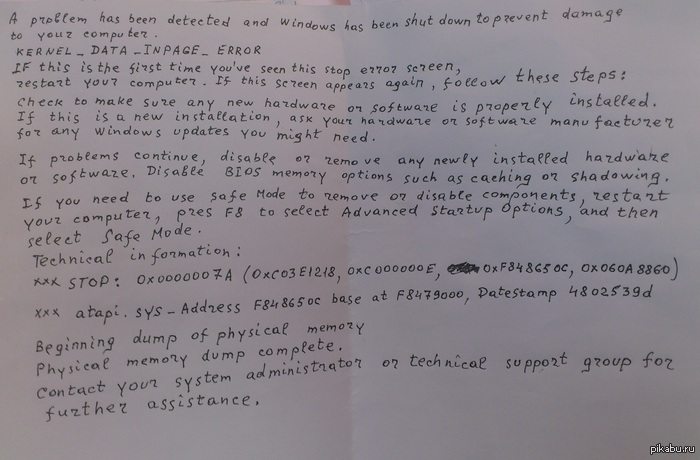 A problem has been detected and Windows has been shut down to prevent damage
to your computer.
KERNEL_DATA_INPAGE_ERROR
IF this is the first time you've seen this stop error screen,
restart your computer. If this screen appears again, follow these steps:
Check to make sure any new hardware or software is properly installed.
If this is a new installation, ask your hardware or software manufacturer
for any windows updates you might need.
If problems continue, disable or remove any newly installed hardware
or software. Disable BIOS memory options such as caching or shadowing.
If you need to use Safe Mode to remove or disable components, restart
your computer, pres F8 to select Advanced Startup Options, and then
select Safe Mode.
Technical information:
xxx STOP: 0x0000007A (0xC03E1218, 0xC000000E, 0xF848650C, 0x060A8860)
xxx atapi.sys - Address F848650C base at F8479000, Datestamp 4802539d
Beginning dump of physical memory
Physical memory dump complete.
Contact your system administrator or technical support group for
further assistance.
pikabu.ru